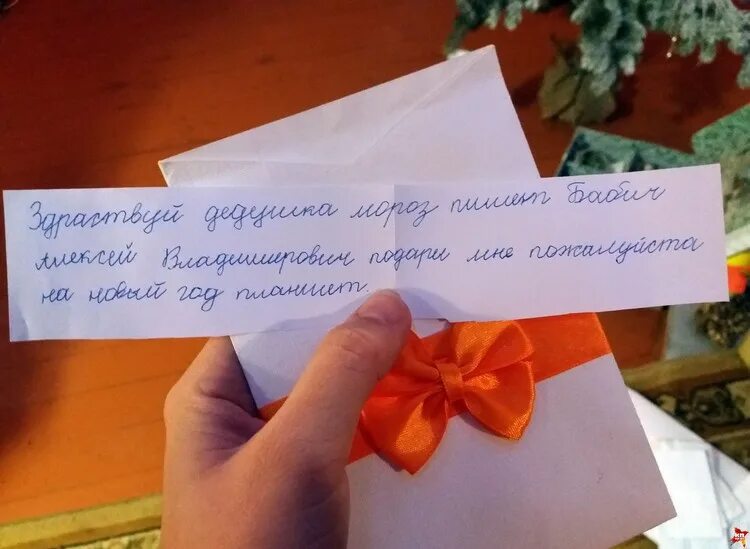 Здраствуй дедушка мороз пишет Бабич
Алексей Владимирович подари мне пожалуйста
на новый год планшет.